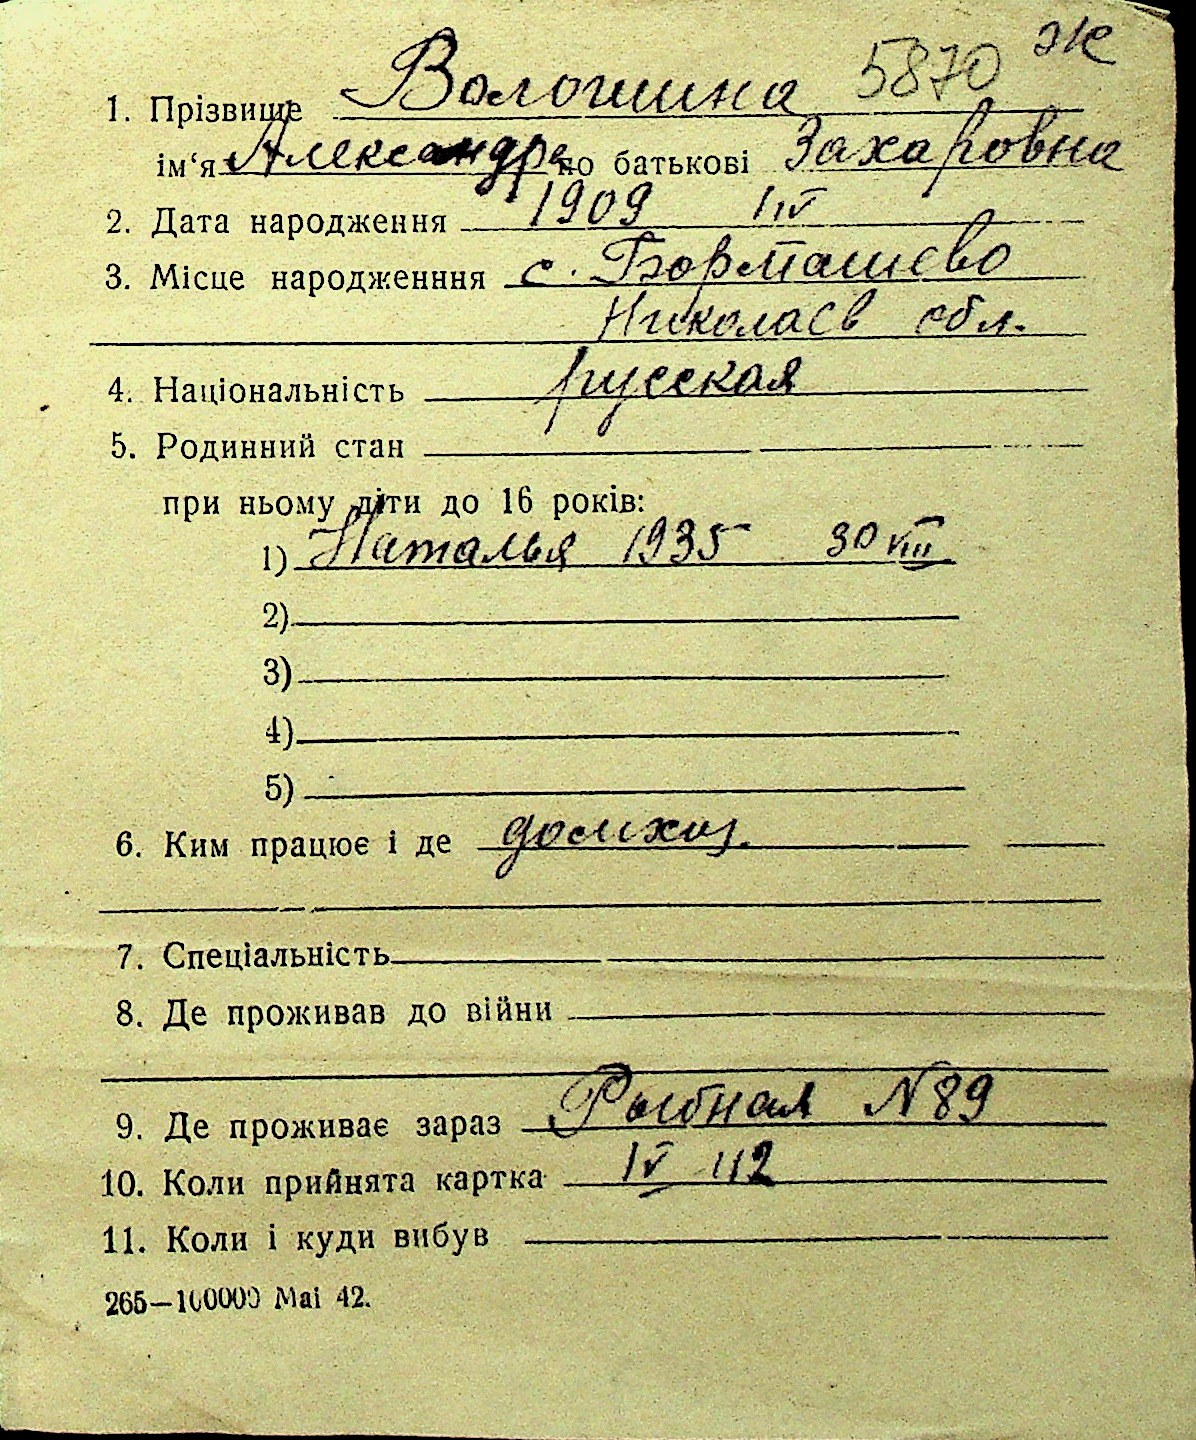 1. Прізвище Волошина 5870 Ж
ім‘я Александра по батькові Захаровна
2. Дата народження 1909 1 IV
3. Місце народженння с. Борташево
Николаев обл.
4. Національність русская
5. Родинний стан
при ньому діти до 16 років:
1) Наталья 1935 30 VIII
2)
3)
4)
5)
6. Ким працює і де домхоз.
7. Спеціальність
8. Де проживав до війни
9. Де проживає зараз Рыбная N 89
10. Коли прийнята картка IV
11. Коли і куди вибув
265—100000 Mai 42.